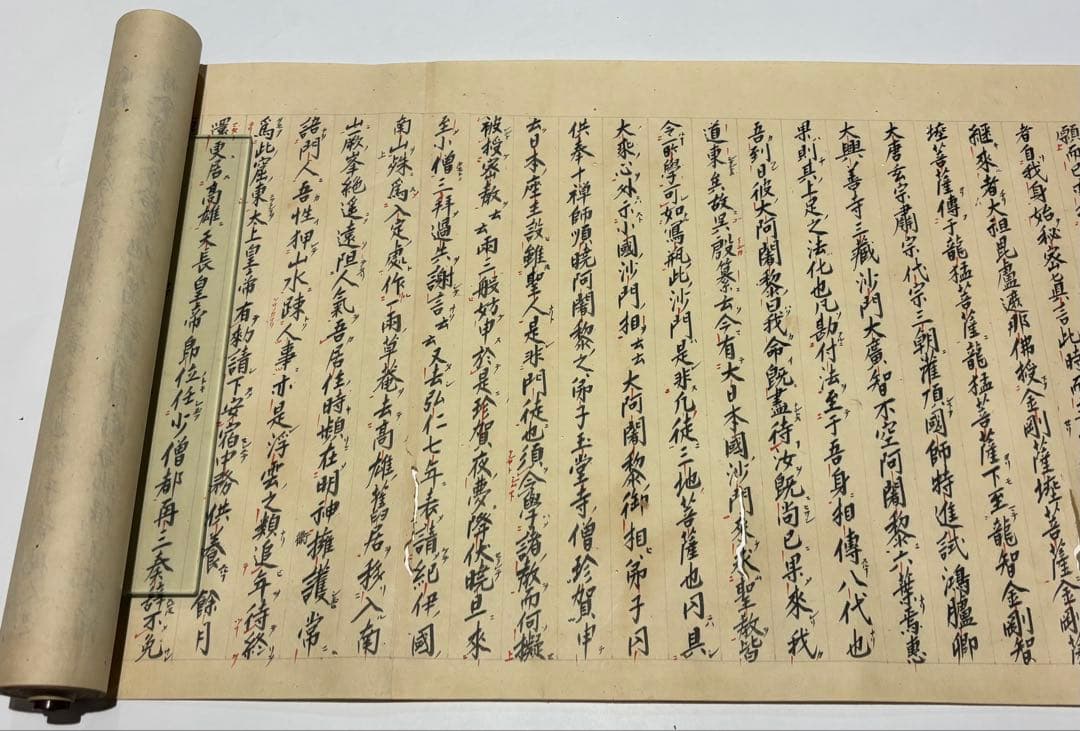 願而已
者自我身始秘密真言此時而
継來者大祖毘盧遮那佛授金剛薩埵菩薩金剛薩
埵菩薩傳于龍猛菩薩龍猛菩薩下至龍智金剛智
大唐玄宗肅宗代宗三朝灌頂國師特進試鴻臚卿
大興善寺三藏沙門大廣智不空阿闍黎六葉焉惠
果則其上足之法化也凡勘付法至于吾身相傳八代也
吾到日彼大阿闍黎曰我命既盡待汝既尚已果來我
道東矣故吳殷纂云今有大日本國沙門來求聖教皆
令所學可如寫瓶此沙門是非凡徒三地菩薩也内具
大乘心外示小國沙門相云云大阿闍黎御相弟子内
供奉十禪師順曉阿闍黎之弟子玉堂寺僧珍賀申
云日本座主設雖聖人是非門徒也須令學諸教而何擬
被授密教云云兩三般妨申於是珍賀夜夢降伏曉旦來
至小僧三拜過失謝言云云又去弘仁七年表請紀伊國
南山殊爲入定處作兩草菴去高雄舊居移入南
山厥峯絶遙遠阻人氣吾居住時頻在明神擁護常
語門人吾性狎山水疎人事亦是浮雲之類追年待終
爲此窟東太上皇帝有勅請下安宿中務供養餘月
還更居高雄天長皇帝即位任少僧都再三奏辭不免